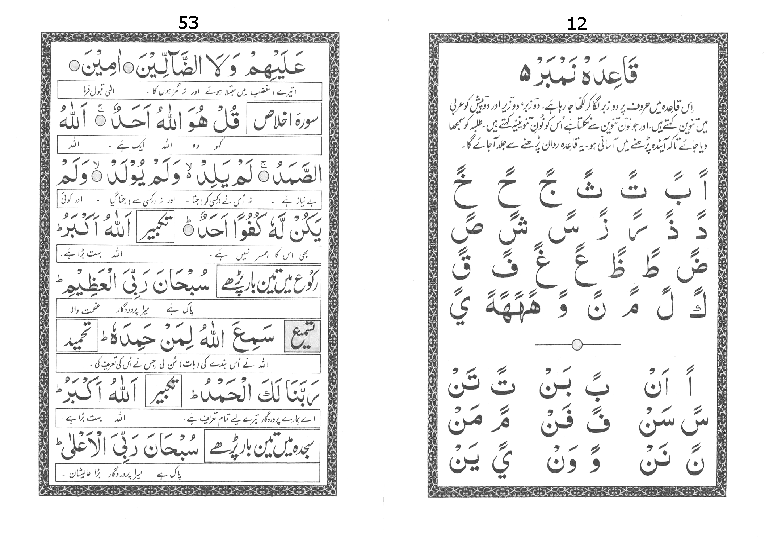 53
عَلَيْهِمْ وَلَا الضَّآلِّيْنَ ○ اٰمِيْنَ ○
سورہ اخلاص قُلْ هُوَ اللّٰهُ اَحَدٌ ۚ اَللّٰهُ
کہو وہ اللہ ایک ہے ۔ اللہ
الصَّمَدُ ۚ لَمْ يَلِدْ ۙ وَلَمْ يُوْلَدْ ۙ وَلَمْ
يَكُنْ لَّهٗ كُفُوًا اَحَدٌ ۚ تکبیر اَللّٰهُ اَكْبَرُ ؕ
بھی اس کا ہمسر نہیں ہے ۔ اللہ بہت بڑا ہے ۔
رکوع میں تین بار پڑھے سُبْحَانَ رَبِّيَ الْعَظِيْمِ ؕ
پاک ہے میرا پروردگار عظمت والا
تسمیع سَمِعَ اللّٰهُ لِمَنْ حَمِدَهٗ ؕ تحمید
اللہ نے اس بندے کی (بات) سن لی جس نے اس کی تعریف کی ۔
رَبَّنَا لَكَ الْحَمْدُ ؕ تکبیر اَللّٰهُ اَكْبَرُ ؕ
اے ہمارے پروردگار تیرے لئے تمام تعریف ہے ۔ اللہ بہت بڑا ہے
سجدہ میں تین بار پڑھے سُبْحَانَ رَبِّيَ الْاَعْلٰى ؕ
پاک ہے میرا پروردگار بڑا عالیشان ۔
12
قاعدہ نمبر ۵
اس قاعدہ میں حروف پر دو زبر لگا کر لکھے جا رہا ہے۔ دو زبر، دو زیر اور دو پیش کو عربی
میں تنوین کہتے ہیں۔ اور جو نون تنوین سے نکلتا ہے اُس کو نون تنوین کہتے ہیں۔ طلبہ کو سمجھا
دیا جائے تاکہ آئندہ پڑھنے میں آسانی ہو۔ یہ قاعدہ رواں پڑھنے سے جلد آ جائے گا۔
اً بً تً ثً جً حً خً
دً ذً رً زً سً شً صً
ضً طً ظً عً غً فً قً
كً لً مً نً وً هًهًهًةً يً
اً اَنْ بً بَنْ تً تَنْ
سً سَنْ فً فَنْ مً مَنْ
نً نَنْ وً وَنْ يً يَنْ